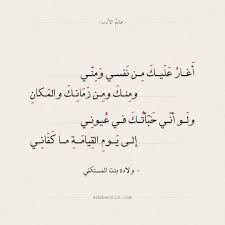 عالم الأدب
أَغَارُ عَلَيْكَ مِن نَفسي وَمِنّي
وَمِنكَ وَمِن زَمَانِكَ وَالمَكانِ
وَلَو أَنّي خَبَأتُكَ في عُيونِي
إِلى يَومِ القِيامَةِ ما كَفَاني
- ولادة بنت المستكفي -
adabworld.com